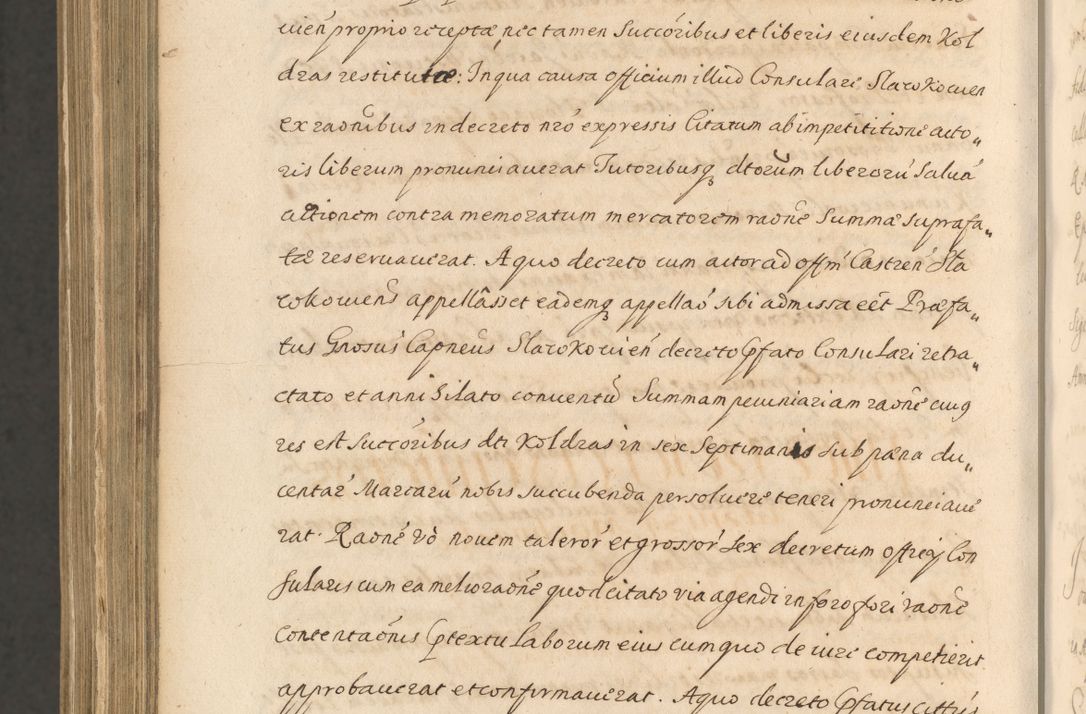 uień proprio receptæ nec tamen Succoribus et liberis eiusdem Kol
dras restitutæ: In qua causa officium illud Consulare Slawkowien
ex raonibus in decreto nrō expressis Citatum ab impetititione acto„
ris liberum pronunciauerat Tutoribusq dtorum liberorū Saluā
actionem contra memoratum mercatorem raone Summæ suprafa„
tæ reseruauerat. A quo decreto cum actor ad offm Castren Sla
wkowiens appellasset eademq appellao sibi admissa eet Præfa„
tus Gnosus Capneus Slawkowien decreto Pfato Consulari retra„
ctato et annihilato conuentū Summam pecuniariam raone cuiq
res est Succoribus dti Koldras in sex Septimanis sub pæna du„
centar Marcarū nobis succubenda persoluere teneri pronunciaue
rat. Raone vò nouem taleror et grossor sex decretum officij Con
sularis cum ea melioraone quod citato via agendi in foro fori raone
Contentaonis Ptextu laborum eius cum quo de iure competierit
approbauerat et confirmauerat. A quo decreto Pfatus citus